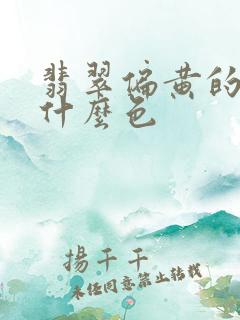 翡翠偏黄的
什麼色
揚千千
未经同意禁止转载